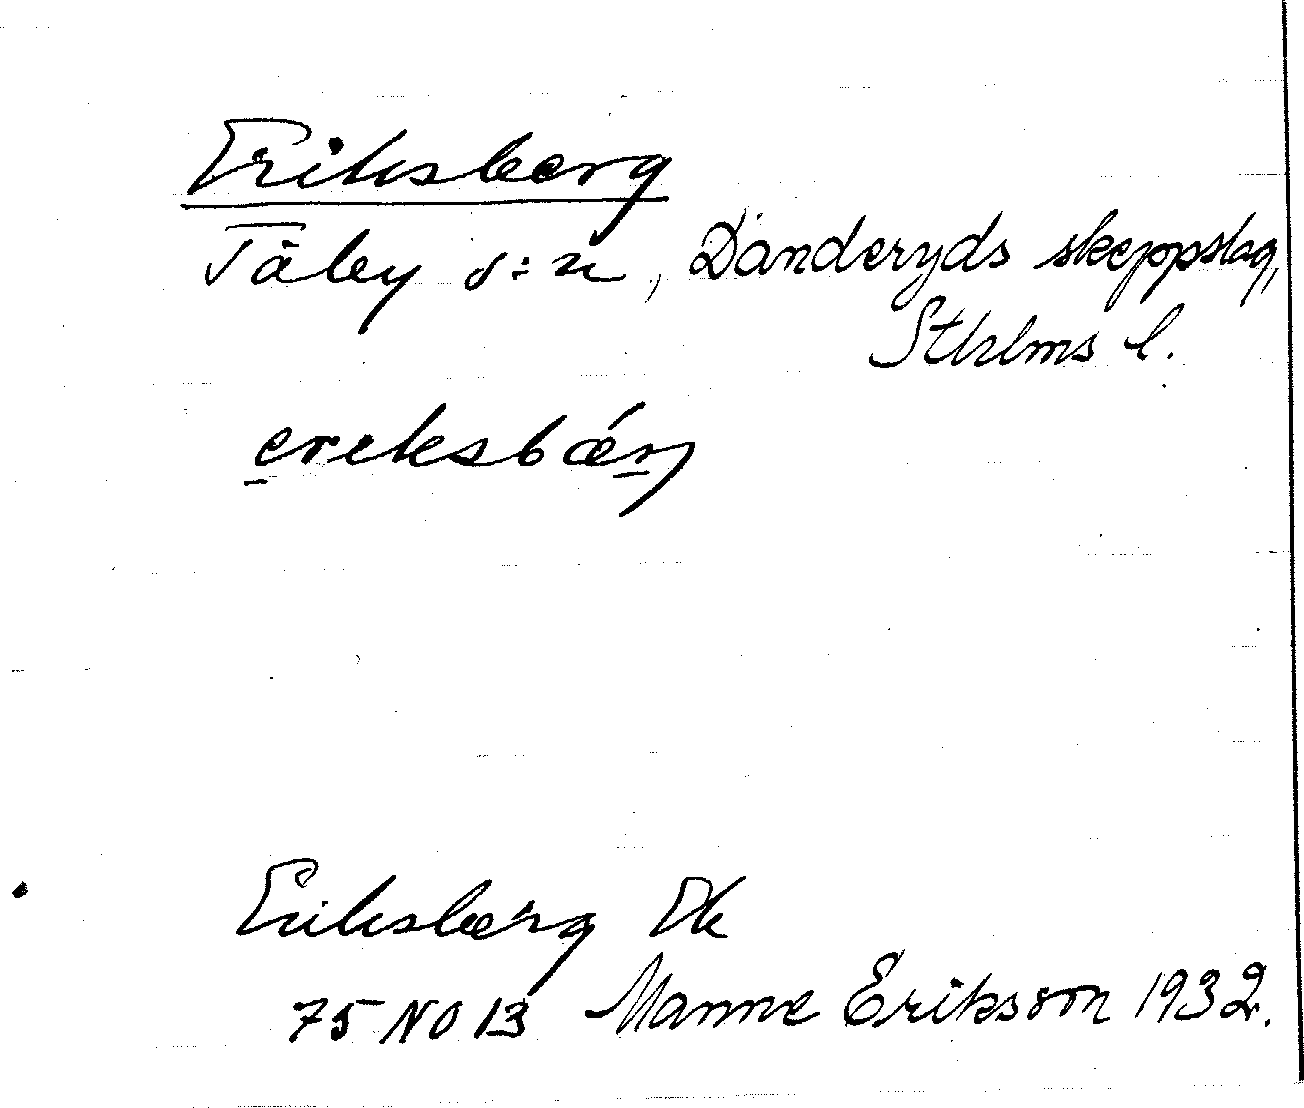 Eriksberg
Täby s:n, Danderyds skeppslag,
Sthlms l.
ereksbǽrj
Eriksberg Ek
75 NO 13 Manne Eriksson 1932.